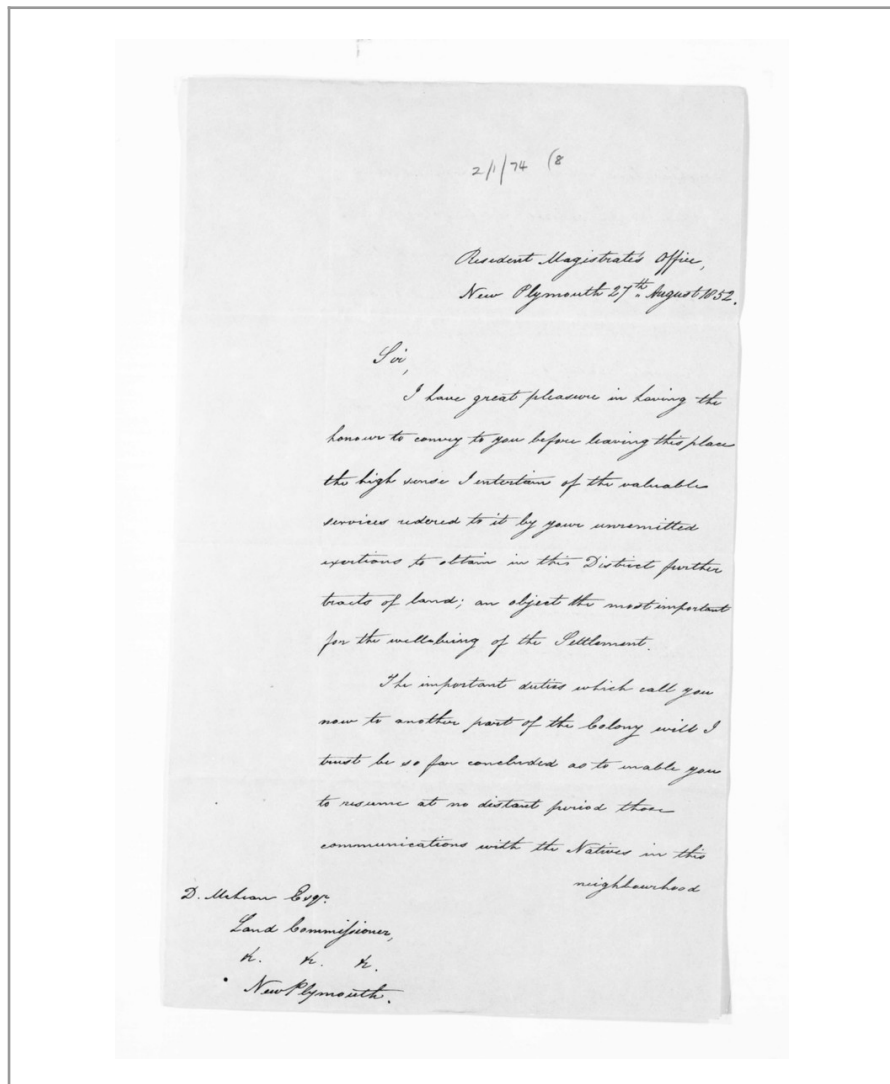 2/1/74 (8
Resident Magistrate's Office,
New Plymouth 27th August 1852.
Sir,
I have great pleasure in having the
honour to convey to you before leaving this place
the high sense I entertain of the valuable
services redered to it by your unremitted
exertions to obtain in this District further
tracts of land; an object the most important
for the wellbeing of the Settlement.
The important duties which call you
now to another part of the Colony will I
trust be so far concluded as to enable you
to resume at no distant period those
communications with the Natives in this
neighbourhood
D. McLean Esqr.
Land Commissioner,
&c. &c. &c.
New Plymouth.